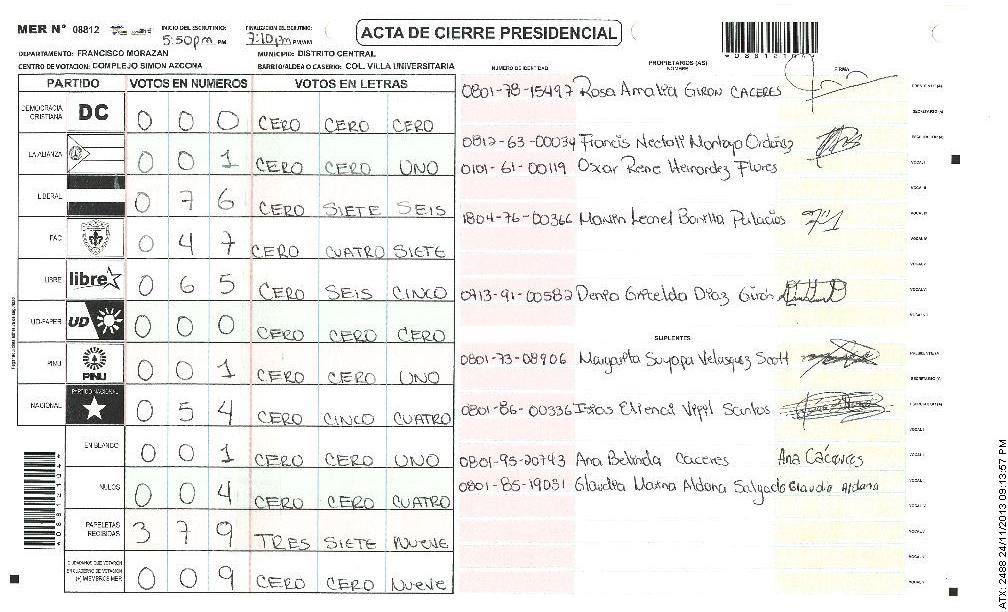 MER Nº 08812
INICIO DEL ESCRUTINIO: 5:50pm PM
FINALIZACION DEL ESCRUTINIO: 7:10pm PM/AM
ACTA DE CIERRE PRESIDENCIAL
DEPARTAMENTO: FRANCISCO MORAZAN
MUNICIPIO: DISTRITO CENTRAL
CENTRO DE VOTACION: COMPLEJO SIMON AZOCINA
BARRIO/ALDEA O CASERIO: COL. VILLA UNIVERSITARIA
PARTIDO VOTOS EN NUMEROS VOTOS EN LETRAS
DEMOCRACIA CRISTIANA DC 0 0 0 CERO CERO CERO
LA ALIANZA 0 0 1 CERO CERO UNO
LIBERAL 0 7 6 CERO SIETE SEIS
PAC 0 4 7 CERO CUATRO SIETE
LIBRE libre 0 6 5 CERO SEIS CINCO
UD-FAPER UD 0 0 0 CERO CERO CERO
PINU PINU 0 0 1 CERO CERO UNO
NACIONAL PARTIDO NACIONAL 0 5 4 CERO CINCO CUATRO
EN BLANCO 0 0 1 CERO CERO UNO
NULOS 0 0 4 CERO CERO CUATRO
PAPELETAS RECIBIDAS 3 7 9 TRES SIETE NUEVE
CIUDADANOS QUE VOTARON EN CUADERNO DE VOTACION (+) MIEMBROS MER 0 0 9 CERO CERO NUEVE
NUMERO DE IDENTIDAD PROPIETARIOS (AS) NOMBRE FIRMA
0801-78-15497 Rosa Amalia GIRON CACERES
0812-63-00034 Francis Neftali Montoya Ordoñez
0101-61-00119 Oscar Rene Hernandez Flores
1804-76-00366 Marvin Leonel Bonilla Palacios
0913-91-00582 Denia Griselda Diaz Giron
SUPLENTES
0801-73-08906 Margarita Suyapa Velasquez Scott
0801-86-00336 Isias Elienai Vijil Santos
0801-95-20743 Ana Belinda Caceres Ana Cáceres
0801-85-19031 Glaudia Marina Aldana Salgado Glaudia Aldana
ATX: 2488 24/11/2013 09:13:57 PM